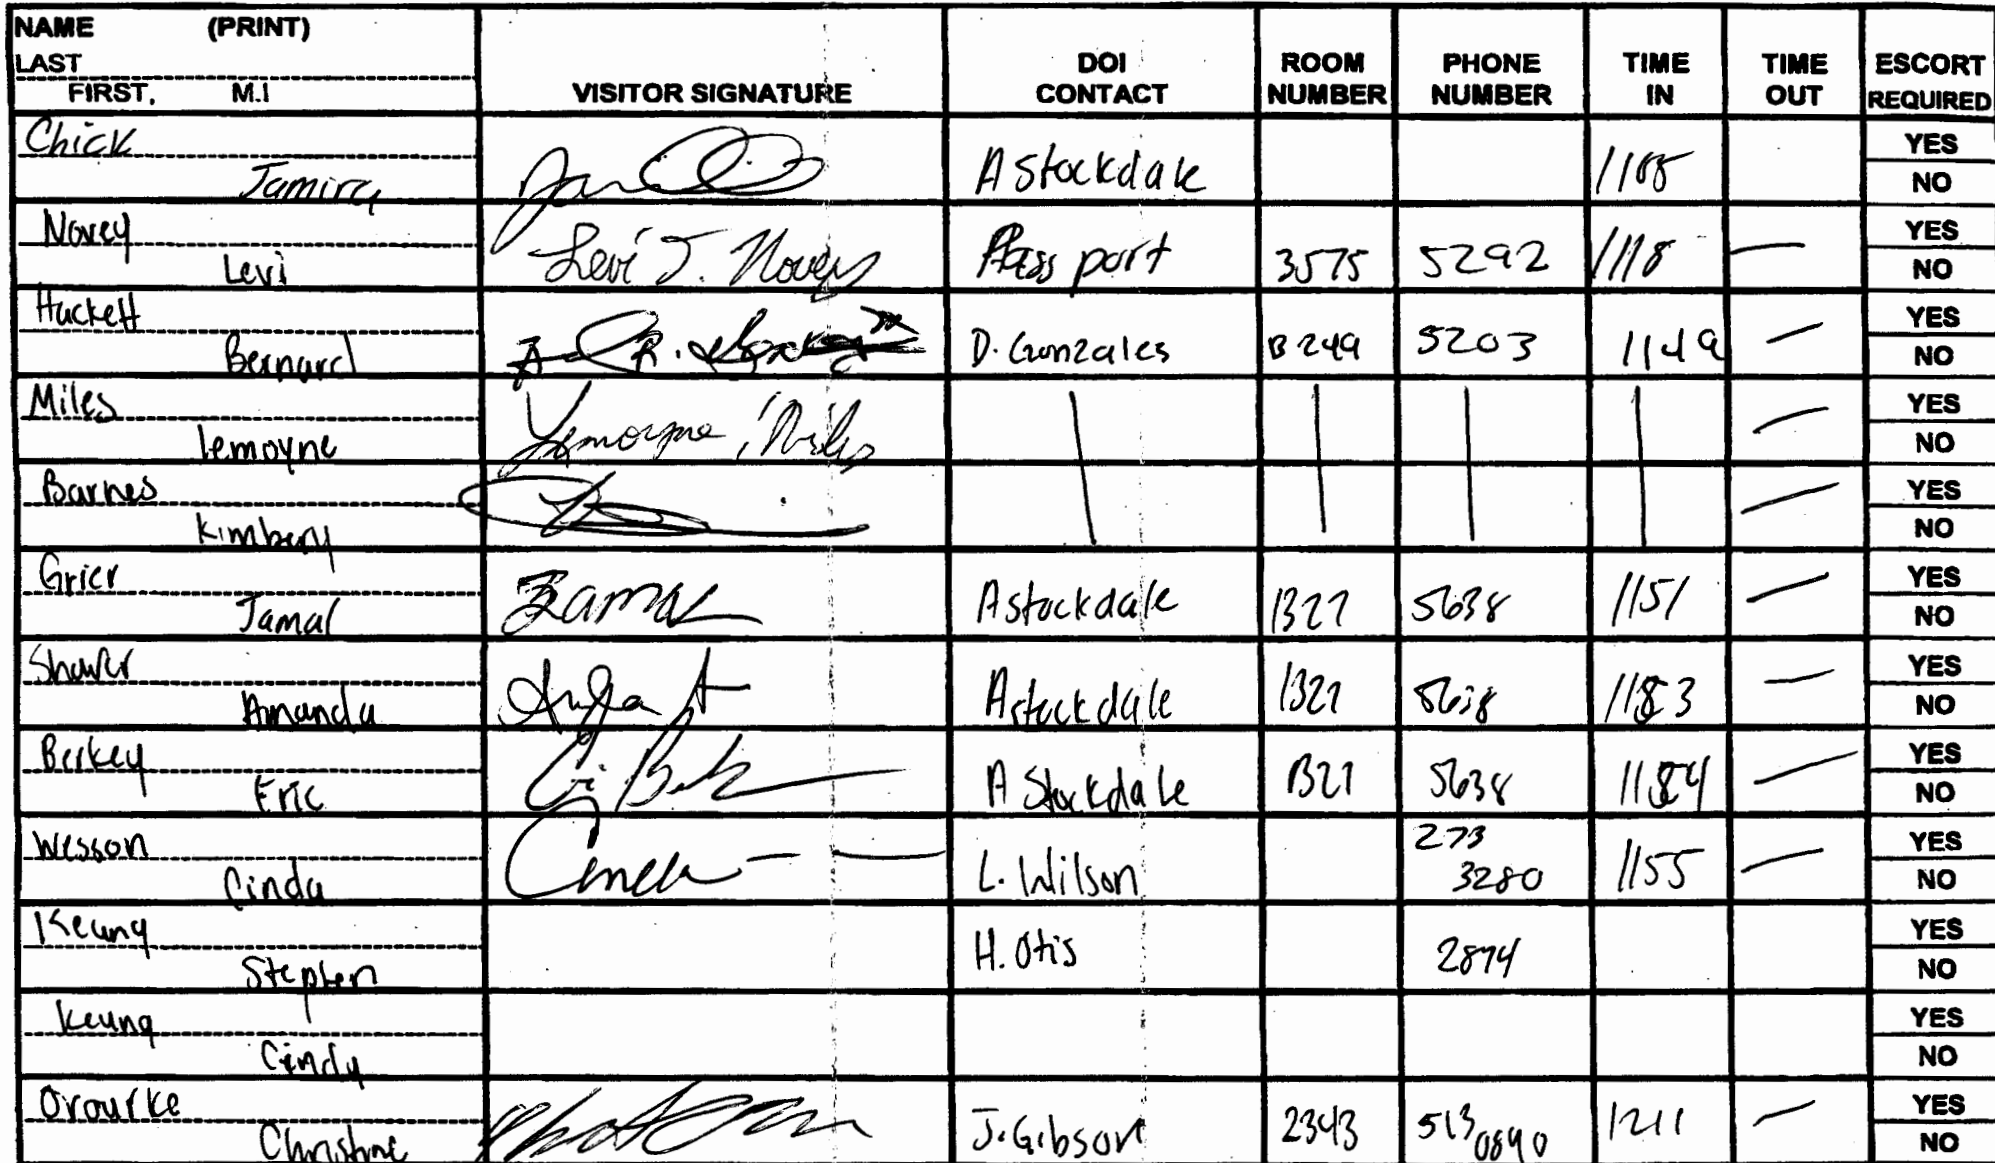 NAME (PRINT)
LAST
FIRST, M.I
VISITOR SIGNATURE
DOI CONTACT
ROOM NUMBER
PHONE NUMBER
TIME IN
TIME OUT
ESCORT REQUIRED
Chick
Jamira A Stockdale YES NO
Novey
Levi Levi J. Novey Passport 3575 5292 1118 — YES NO
Hackett
Bernard D. Gonzales B249 5203 1149 — YES NO
Miles
Lemoyne Lemoyne Miles — YES NO
Barnes
Kimbery — YES NO
Grier
Jamal Jamal A Stockdale 1327 5638 1151 — YES NO
Amanda A Stockdale 1327 5638 — YES NO
Berkey
Eric A Stockdale 1327 5638 — YES NO
Wesson
Cinda L. Wilson 273 3280 1155 — YES NO
Keung
Stephen H. Otis 2874 YES NO
Keung
Cindy YES NO
Orourke
Christine J. Gibson 2343 513 0890 1211 — YES NO